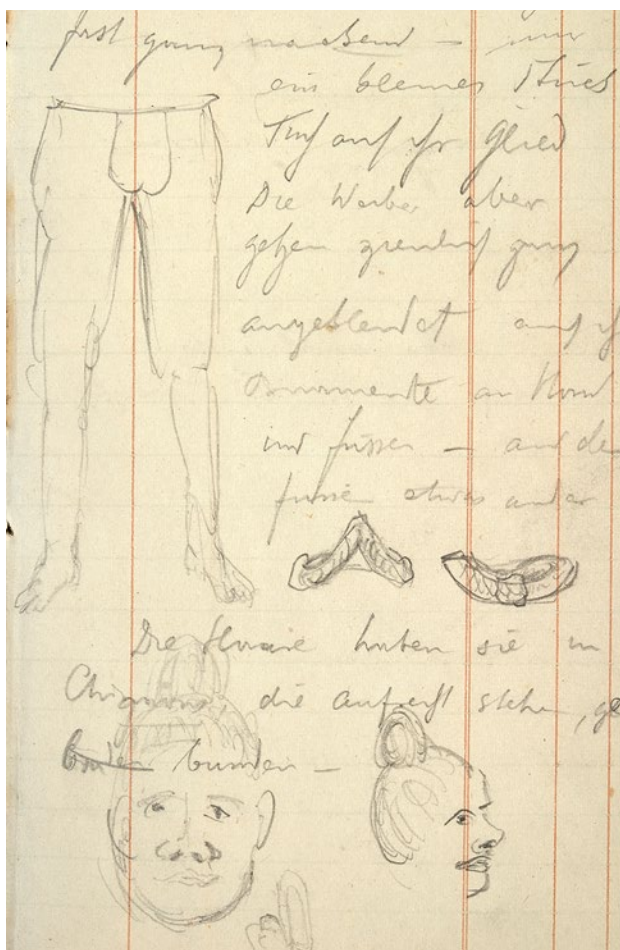 fast ganz nackend – nur
ein kleines Stück
Tuch auf ihr Glied
Die Weiber aber
gehen ziemlich ganz
angekleidet
Ornamente an Hand
und füssen – an de
etwas ander
Die Haare haben sie in
Chignons, die aufrecht stehen, ge
bunden –